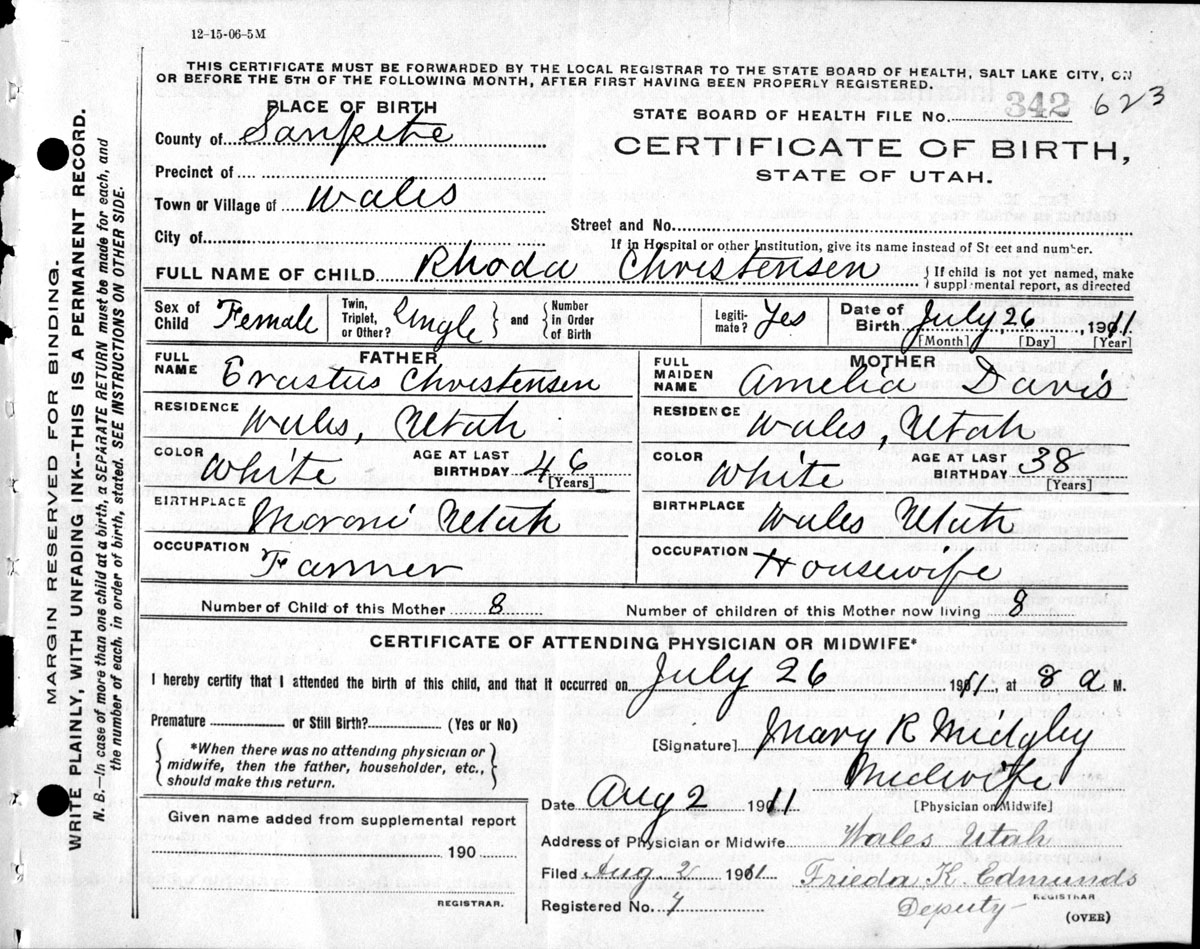 12-15-06-5M
THIS CERTIFICATE MUST BE FORWARDED BY THE LOCAL REGISTRAR TO THE STATE BOARD OF HEALTH, SALT LAKE CITY, ON
OR BEFORE THE 5TH OF THE FOLLOWING MONTH, AFTER FIRST HAVING BEEN PROPERLY REGISTERED.
PLACE OF BIRTH
STATE BOARD OF HEALTH FILE No. 342 623
County of Sanpete
CERTIFICATE OF BIRTH,
STATE OF UTAH.
Precinct of
Town or Village of Wales
Street and No.
City of
If in Hospital or other Institution, give its name instead of Street and number.
FULL NAME OF CHILD Rhoda Christensen { If child is not yet named, make
supplemental report, as directed
Sex of Child Female
Twin, Triplet, or Other? Single } and { Number in Order of Birth
Legitimate? Yes
Date of Birth July, 26, 1911
[Month] [Day] [Year]
FATHER
FULL NAME Erastus Christensen
MOTHER
FULL MAIDEN NAME Amelia Davis
RESIDENCE Wales, Utah
RESIDENCE Wales, Utah
COLOR White AGE AT LAST BIRTHDAY 46 [Years]
COLOR White AGE AT LAST BIRTHDAY 38 [Years]
BIRTHPLACE Moroni Utah
BIRTHPLACE Wales Utah
OCCUPATION Farmer
OCCUPATION Housewife
Number of Child of this Mother 8 Number of children of this Mother now living 8
CERTIFICATE OF ATTENDING PHYSICIAN OR MIDWIFE*
I hereby certify that I attended the birth of this child, and that it occurred on July 26 1911, at 8 a M.
Premature or Still Birth? (Yes or No)
[Signature] Mary R Midgley
{ *When there was no attending physician or
midwife, then the father, householder, etc.,
should make this return. }
Midwife
[Physician or Midwife]
Date Aug 2 1911
Given name added from supplemental report
190
REGISTRAR.
Address of Physician or Midwife Wales Utah
Filed Aug 2 1911 Frieda K. Edmunds
REGISTRAR
Registered No. 7 Deputy
(OVER)
MARGIN RESERVED FOR BINDING.
WRITE PLAINLY, WITH UNFADING INK--THIS IS A PERMANENT RECORD.
N. B.—In case of more than one child at a birth, a SEPARATE RETURN must be made for each, and
the number of each, in order of birth, stated. SEE INSTRUCTIONS ON OTHER SIDE.